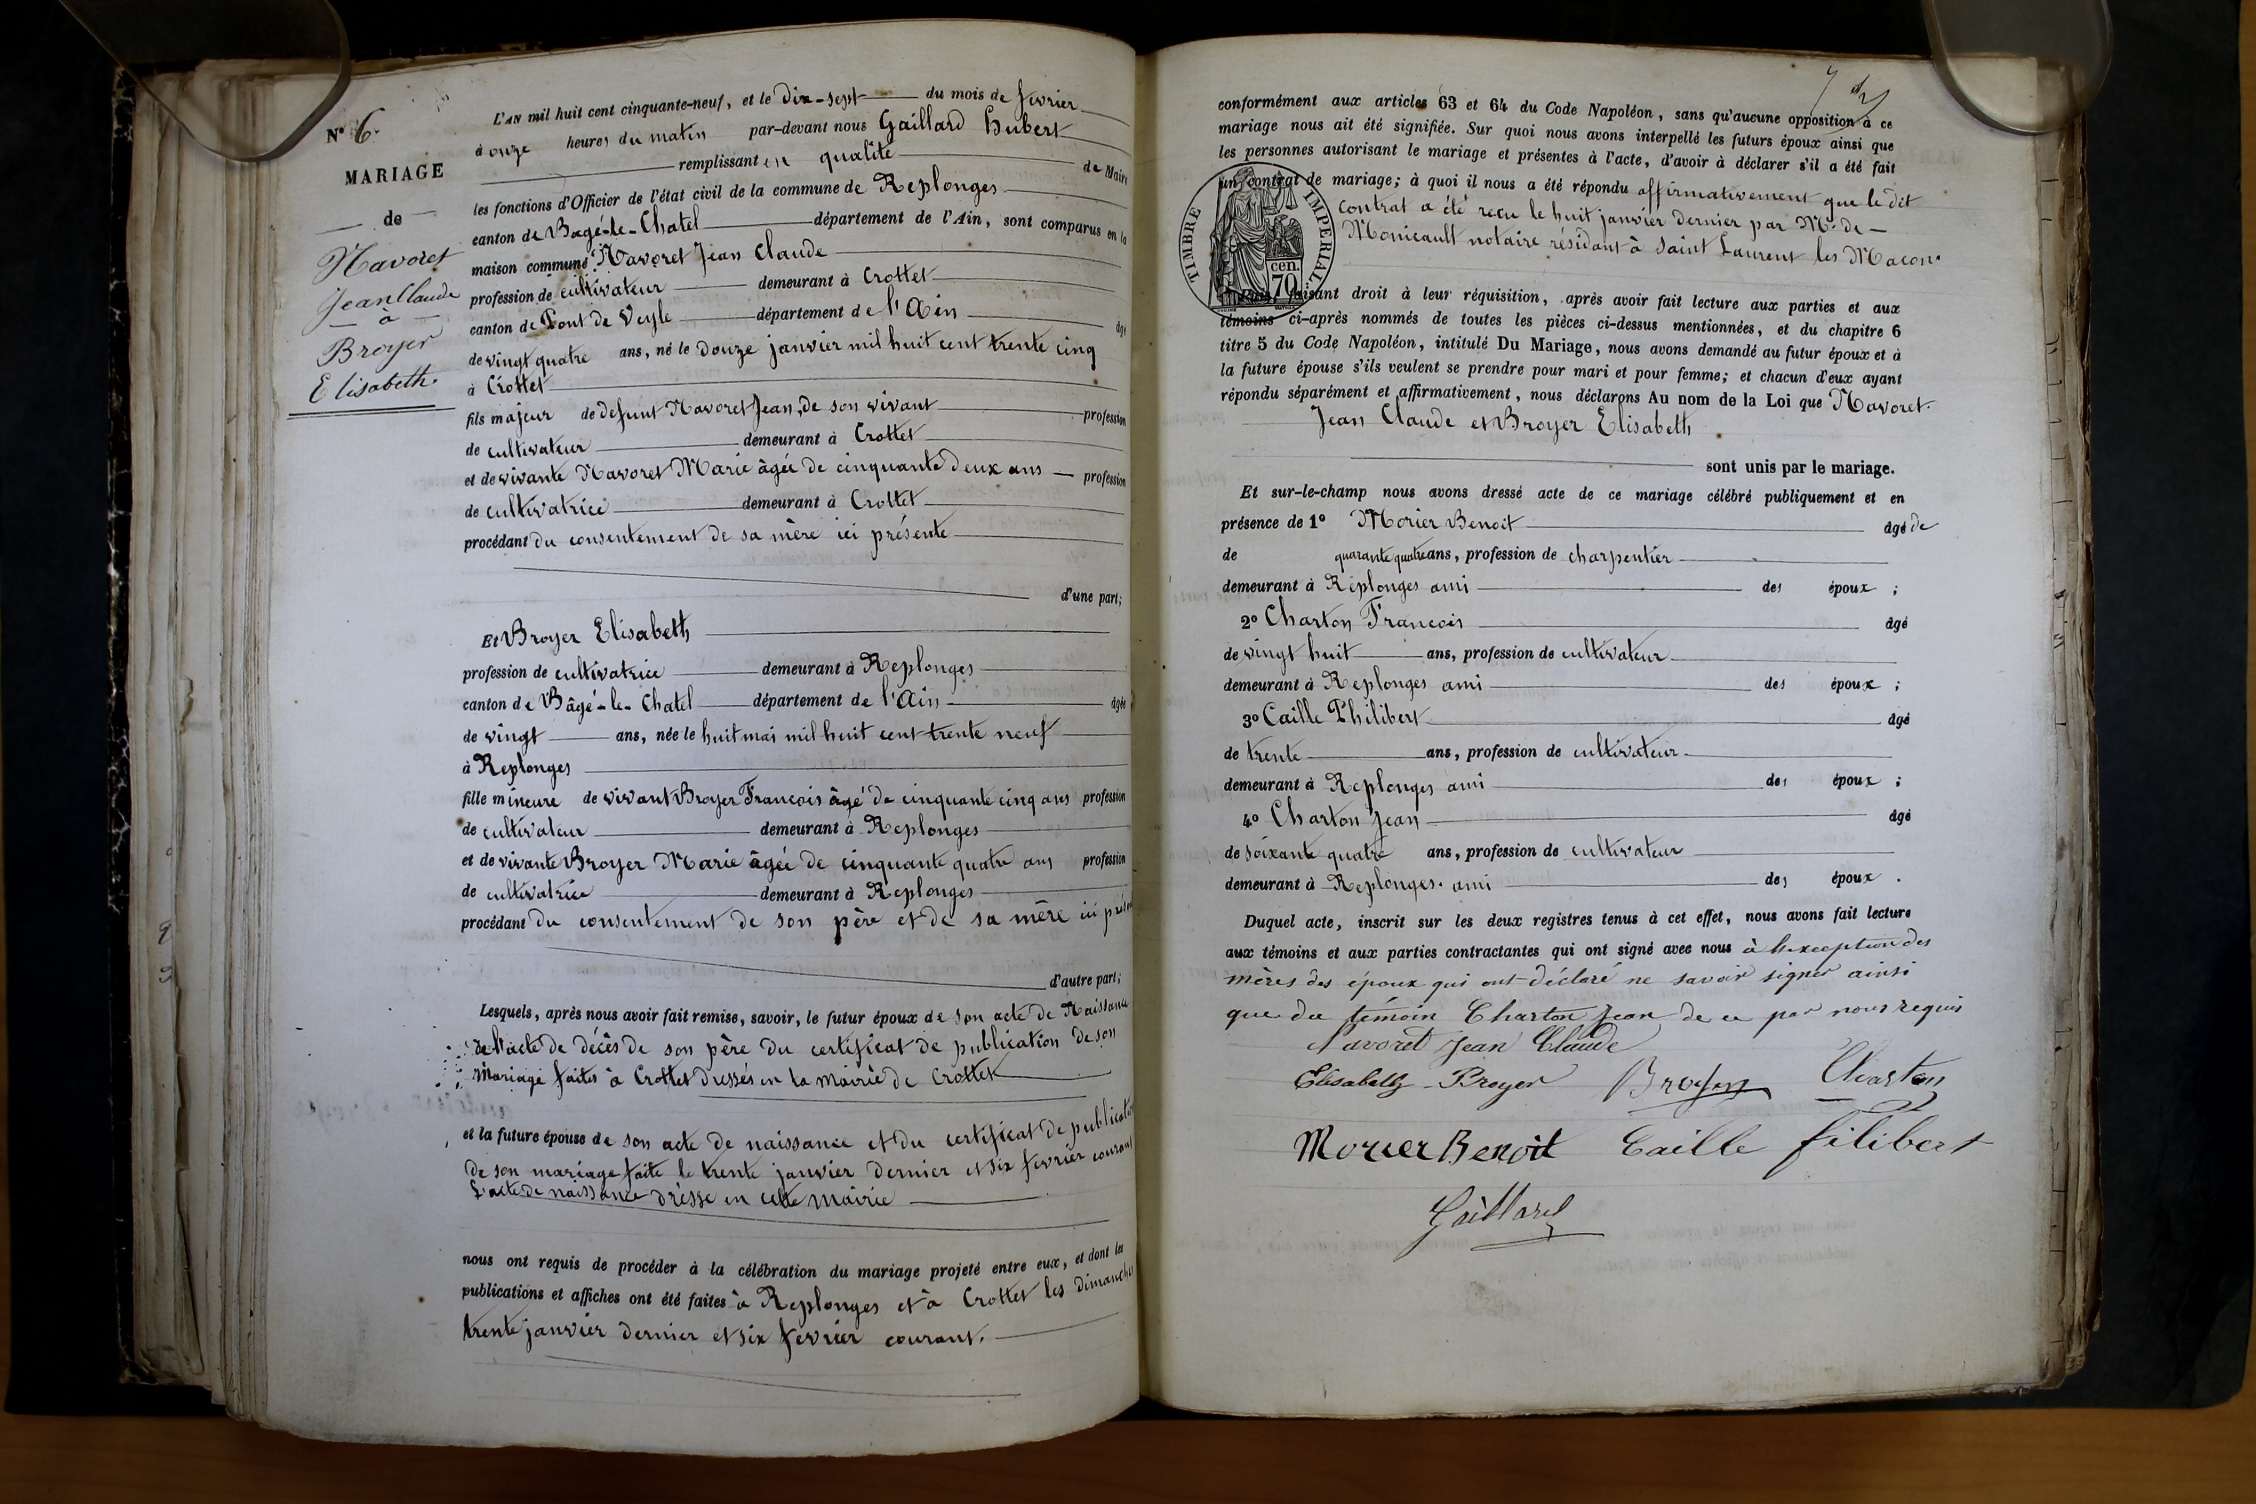 N° 6.
MARIAGE
de
Navoret
Jean Claude
à
Broyer
Elisabeth.
L'AN mil huit cent cinquante-neuf, et le Dix-sept du mois de février
à onze heures du matin par-devant nous Gaillard Hubert
remplissant en qualité de Maire
les fonctions d'Officier de l'état civil de la commune de Replonges
canton de Bagé-le-Chatel département de l'Ain, sont comparus en la
maison commune Navoret Jean Claude
profession de cultivateur demeurant à Crottet
canton de Pont de Veyle département de l'Ain âgé
de vingt quatre ans, né le douze janvier mil huit cent trente cinq
à Crottet
fils majeur de defunt Navoret Jean, de son vivant profession
de cultivateur demeurant à Crottet
et de vivante Navoret Marie âgée de cinquante deux ans profession
de cultivatrice demeurant à Crottet
procédant du consentement de sa mère ici présente
d'une part;
Et Broyer Elisabeth
profession de cultivatrice demeurant à Replonges
canton de Bâgé-le-Chatel département de l'Ain âgée
de vingt ans, née le huit mai mil huit cent trente neuf
à Replonges
fille mineure de vivant Broyer Francois âgé de cinquante cinq ans profession
de cultivateur demeurant à Replonges
et de vivante Broyer Marie âgée de cinquante quatre ans profession
de cultivatrice demeurant à Replonges
procédant du consentement de son père et de sa mère ici
d'autre part;
Lesquels, après nous avoir fait remise, savoir, le futur époux de son acte de Naissance
de l'acte de décès de son père du certificat de publication de son
Mariage faites à Crottet dressés en la mairie de Crottet
et la future épouse de son acte de naissance et du certificat de publication
de son mariage faite le trente janvier dernier et six fevrier courant
L'acte de naissance dressé en cette mairie
nous ont requis de procéder à la célébration du mariage projeté entre eux, et dont les
publications et affiches ont été faites à Replonges et à Crottet les dimanches
trente janvier dernier et six fevrier courant.
conformément aux articles 63 et 64 du Code Napoléon, sans qu'aucune opposition à ce
mariage nous ait été signifiée. Sur quoi nous avons interpellé les futurs époux ainsi que
les personnes autorisant le mariage et présentes à l'acte, d'avoir à déclarer s'il a été fait
un contrat de mariage; à quoi il nous a été répondu affirmativement que le dit
contrat a été recu le huit janvier dernier par Me de
Monicault notaire résidant à Saint Laurent les Macon.
TIMBRE IMPERIAL
cen.
70
Puis faisant droit à leur réquisition, après avoir fait lecture aux parties et aux
témoins ci-après nommés de toutes les pièces ci-dessus mentionnées, et du chapitre 6
titre 5 du Code Napoléon, intitulé Du Mariage, nous avons demandé au futur époux et à
la future épouse s'ils veulent se prendre pour mari et pour femme; et chacun d'eux ayant
répondu séparément et affirmativement, nous déclarons Au nom de la Loi que Navoret
Jean Claude et Broyer Elisabeth
sont unis par le mariage.
Et sur-le-champ nous avons dressé acte de ce mariage célébré publiquement et en
présence de 1° Morier Benoit âgé de
de quarante quatre ans, profession de charpentier
demeurant à Replonges ami des époux ;
2° Charton Francois âgé
de vingt huit ans, profession de cultivateur
demeurant à Replonges ami des époux ;
3° Caille Philibert âgé
de trente ans, profession de cultivateur
demeurant à Replonges ami des époux ;
4° Charton Jean âgé
de soixante quatre ans, profession de cultivateur
demeurant à Replonges. ami des époux .
Duquel acte, inscrit sur les deux registres tenus à cet effet, nous avons fait lecture
aux témoins et aux parties contractantes qui ont signé avec nous à l'exception des
mères des époux qui ont déclaré ne savoir signer ainsi
que du témoin Charton Jean de ce par nous requis
Navoret Jean Claude
Elisabeth Broyer Broyer Charton
Morier Benoit Caille filibert
Gaillard